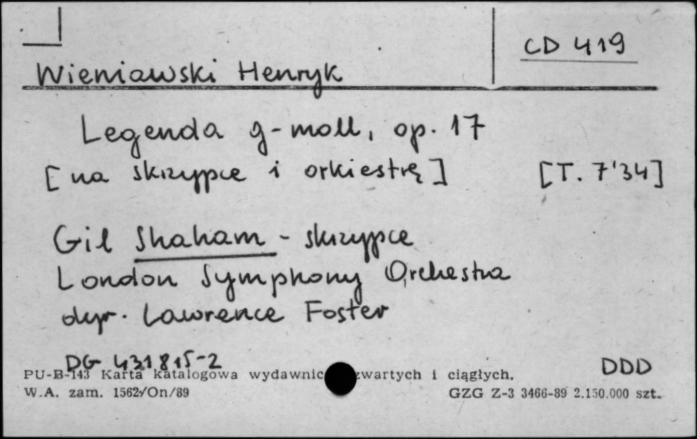 CD 419
Wieniawski Henryk
Legenda g-moll, op. 17
[na skrzypce i orkiestrę] [T. 7'34]
Gil Shaham - skrzypce
London Symphony Orchestra
dyr. Lawrence Foster
DG 431 815-2 DDD
PU-B-143 Karta katalogowa wydawnic zwartych i ciągłych.
W.A. zam. 1562/On/89 GZG Z-3 3466-89 2.150.000 szt.